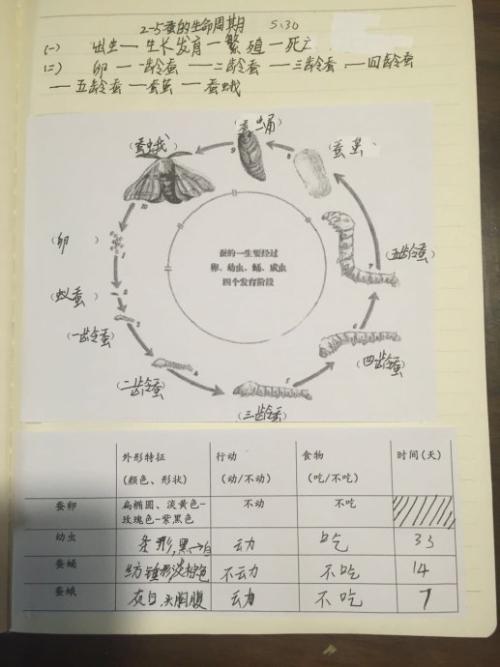 2-5蚕的生命周期 5.30
(一) 出生—生长发育—繁殖—死亡
(二) 卵—一龄蚕—二龄蚕—三龄蚕—四龄蚕
—五龄蚕—蚕茧—蚕蛾
(蚕蛾)
蚕蛹
(蚕茧)
(卵)
(蚁蚕)
(一龄蚕)
(二龄蚕)
(三龄蚕)
(四龄蚕)
(五龄蚕)
蚕的一生要经过
卵、幼虫、蛹、成虫
四个发育阶段
1
2
3
4
5
6
7
8
9
10
外形特征 行动 食物 时间(天)
(颜色、形状) (动/不动) (吃/不吃)
蚕卵 扁椭圆、淡黄色- 不动 不吃
玫瑰色-紫黑色
幼虫 条形,黑→白 动 吃 33
蚕蛹 纺锤形淡棕色 不动 不吃 14
蚕蛾 灰白,头胸腹 动 不吃 7